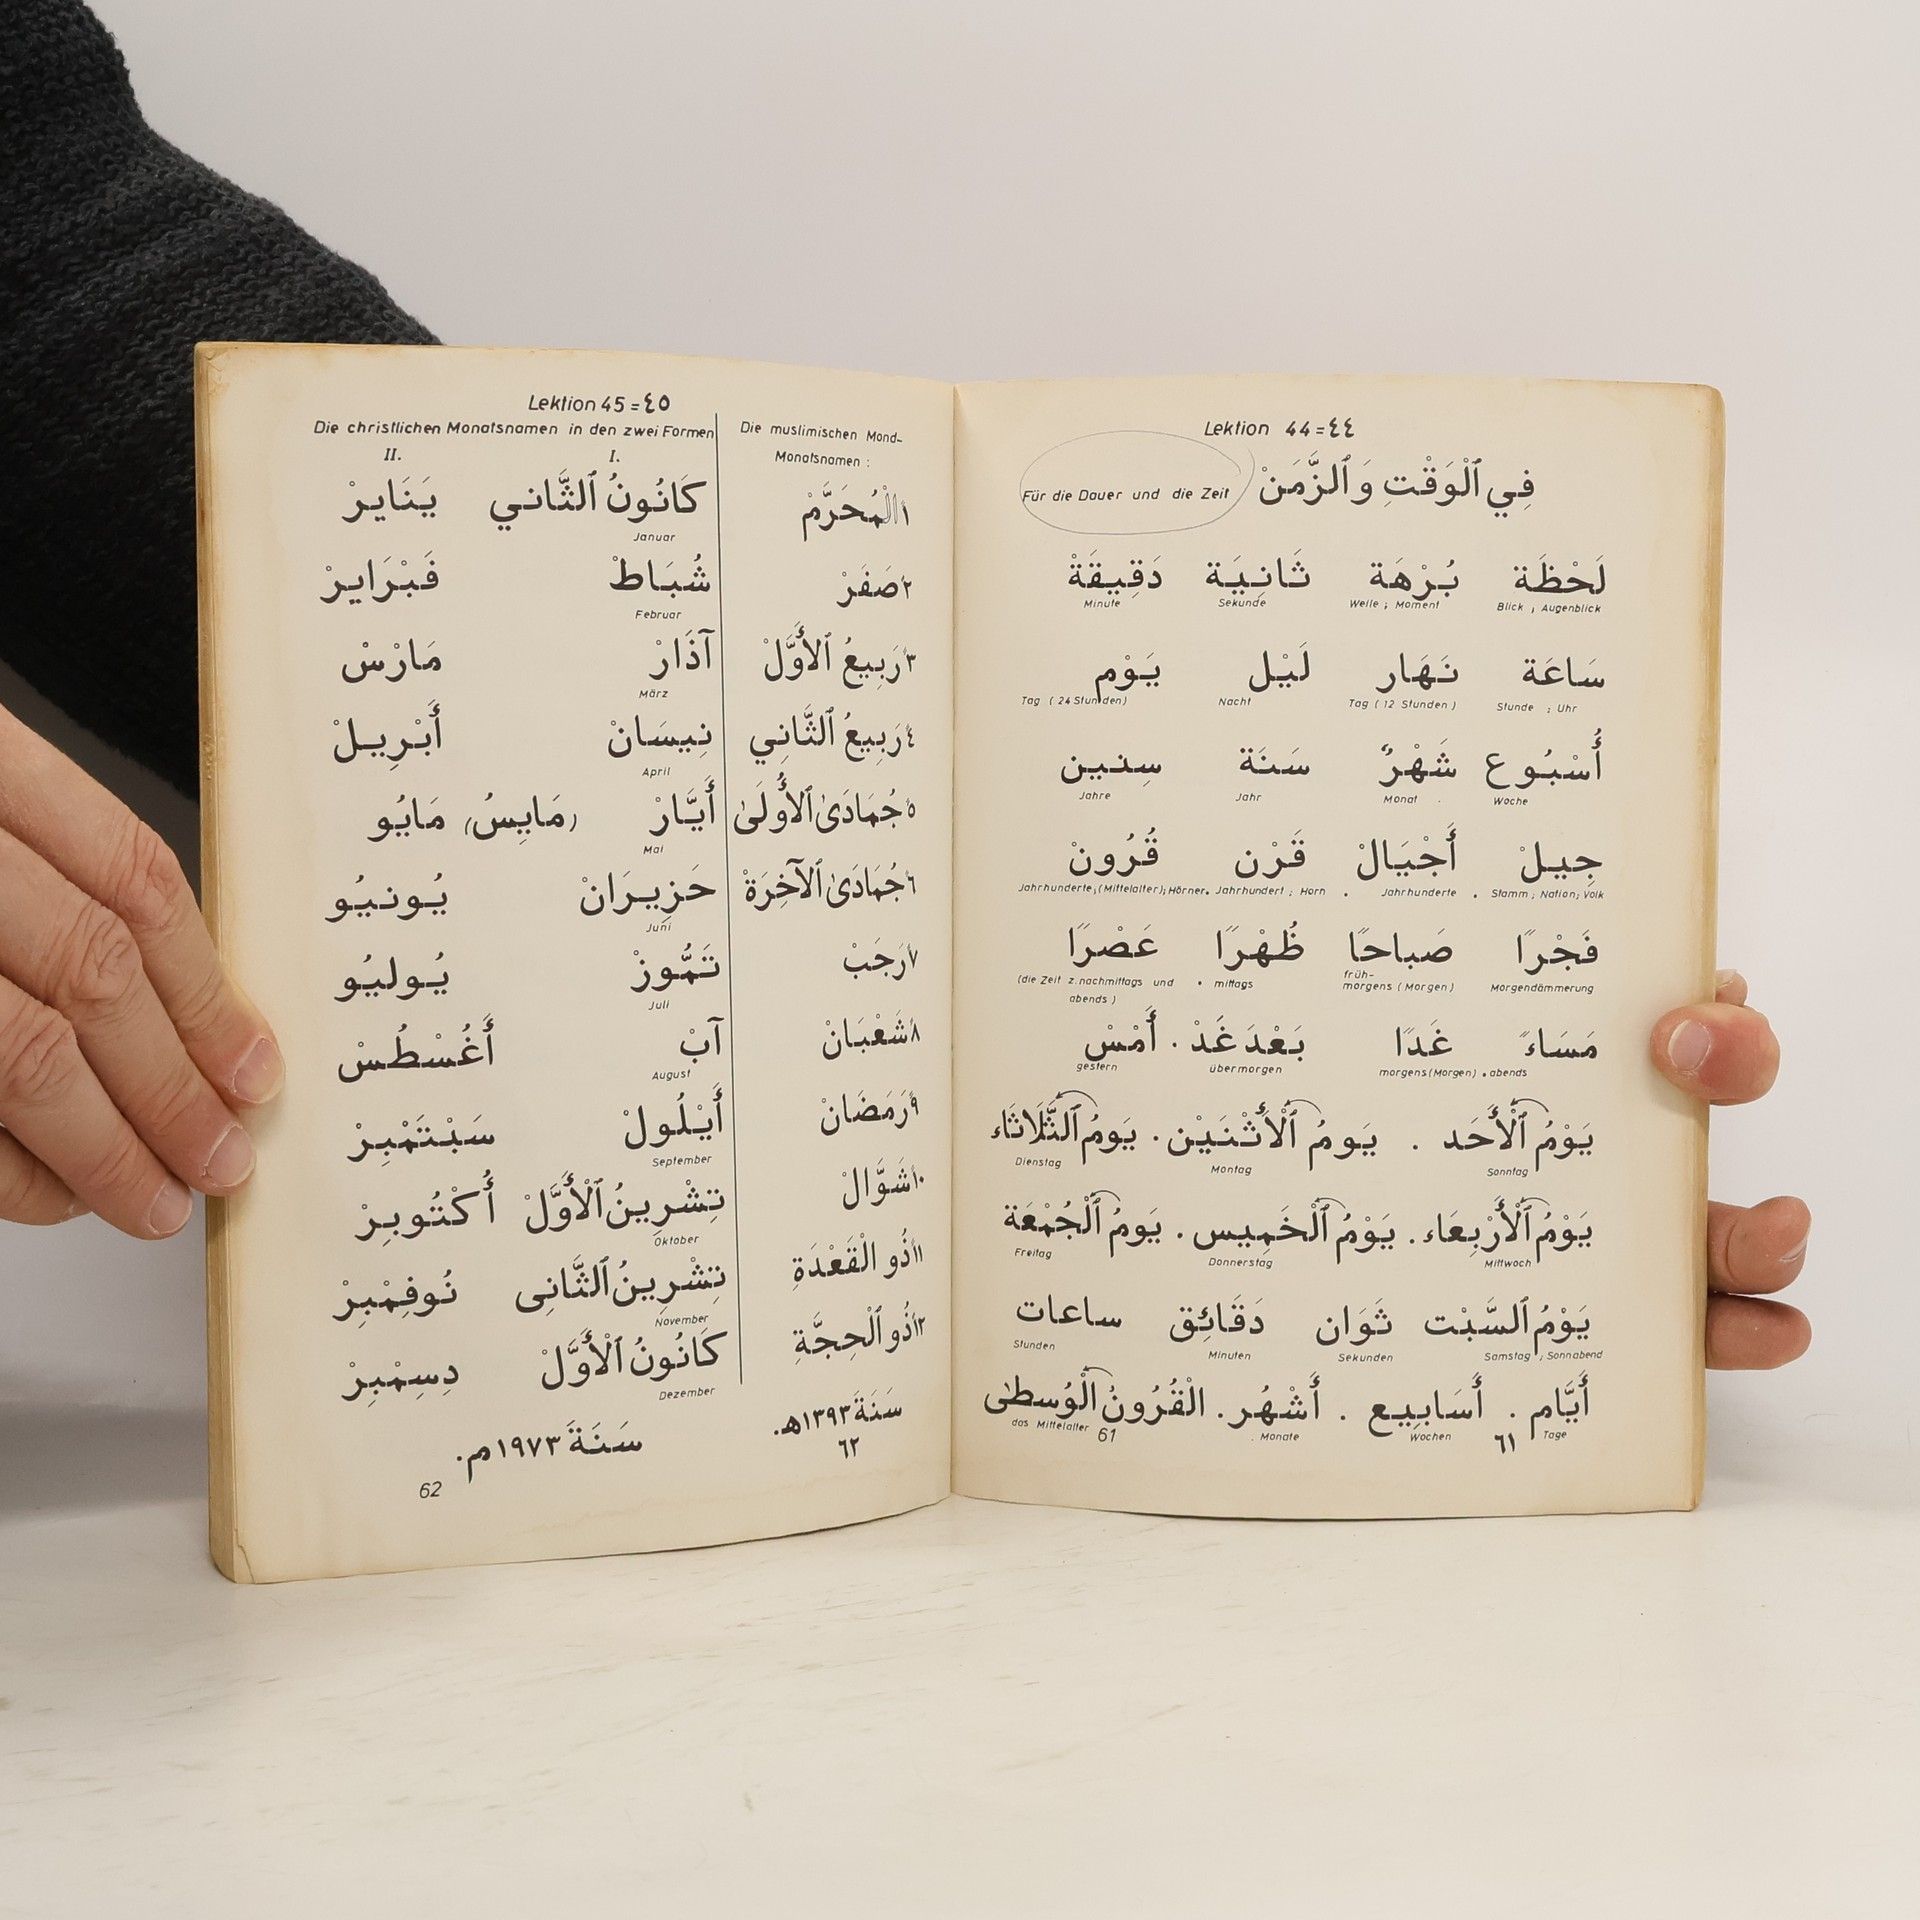 Lektion 44 = ٤٤
فِي ٱلْوَقْتِ وَ ٱلزَّمَنْ Für die Dauer und die Zeit
لَحْظَة بُرْهَة ثَانِيَة دَقِيقَةْ
Blick ; Augenblick Weile ; Moment Sekunde Minute
سَاعَة نَهَار لَيْل يَوْم
Stunde ; Uhr Tag ( 12 Stunden ) Nacht Tag ( 24 Stunden)
أُسْبُوع شَهْرٌ سَنَة سِنين
Woche Monat . Jahr Jahre
جِيلْ أَجْيَالْ قَرْن قُرُونْ
Stamm ; Nation; Volk . Jahrhunderte . Jahrhundert ; Horn Jahrhunderte;(Mittelalter);Hörner.
فَجْرًا صَباحًا ظُهْرًا عَصْرًا
Morgendämmerung früh-morgens ( Morgen) . mittags (die Zeit z.nachmittags und abends )
مَسَاءً غَدًا بَعْدَ غَدْ . أَمْسِ
abends . morgens(Morgen) übermorgen gestern
يَوْمُ ٱلْأَحَد . يَومُ ٱلْأَثْنَيْن . يَومُ ٱلثَّلَاثَاء
Sonntag Montag Dienstag
يَوْمُ ٱلْأَرْبِعَاء . يَوْمُ ٱلْخَمِيس . يَومُ ٱلْجُمْعَة
Mittwoch Donnerstag Freitag
يَوْمُ ٱلسَّبْت ثَوَان دَقَائِق ساعات
Samstag ; Sonnabend Sekunden Minuten Stunden
أَيَّام . أَسَابِيع . أَشْهُر . الْقُرُونُ ٱلْوُسطىٰ
Tage Wochen . Monate das Mittelalter
٦١ 61
Lektion 45 = ٤٥
Die christlichen Monatsnamen in den zwei Formen
I. II.
كَانُونُ ٱلثَّاني يَنَايرْ
Januar
شُبَاطْ فَبْرَايرْ
Februar
آذَارْ مَارْسْ
März
نِيسَانْ أَبْرِيلْ
April
أَيَّارْ (مَايِسُ) مَايُو
Mai
حَزِيرَانْ يُونيُو
Juni
تَمُّوزْ يُوليُو
Juli
آبْ أَغُسْطُسْ
August
أَيْلُولْ سَبْتَمْبِرْ
September
تِشْرِينُ ٱلْأَوَّلْ أُكْتُوبِرْ
Oktober
تِشْرِينُ ٱلثَّانِى نُوفِمْبِرْ
November
كَانُونُ ٱلْأَوَّلْ دِسِمْبِرْ
Dezember
سَنَةَ ١٩٧٣م.
62
Die muslimischen Mond-
Monatsnamen :
١ الْمُحَرَّمْ
٢ صَفَرْ
٣ رَبِيعُ ٱلأَوَّلْ
٤ رَبِيعُ ٱلثَّانِي
٥ جُمَادَىٰ ٱلأُولَىٰ
٦ جُمَادَىٰ ٱلآخِرَةْ
٧ رَجَبْ
٨ شَعْبَانْ
٩ رَمَضَانْ
١٠ شَوَّالْ
١١ ذُو الْقَعْدَةِ
١٢ ذُو ٱلْحِجَّةِ
سَنَةَ ١٣٩٣هـ.
٦٢